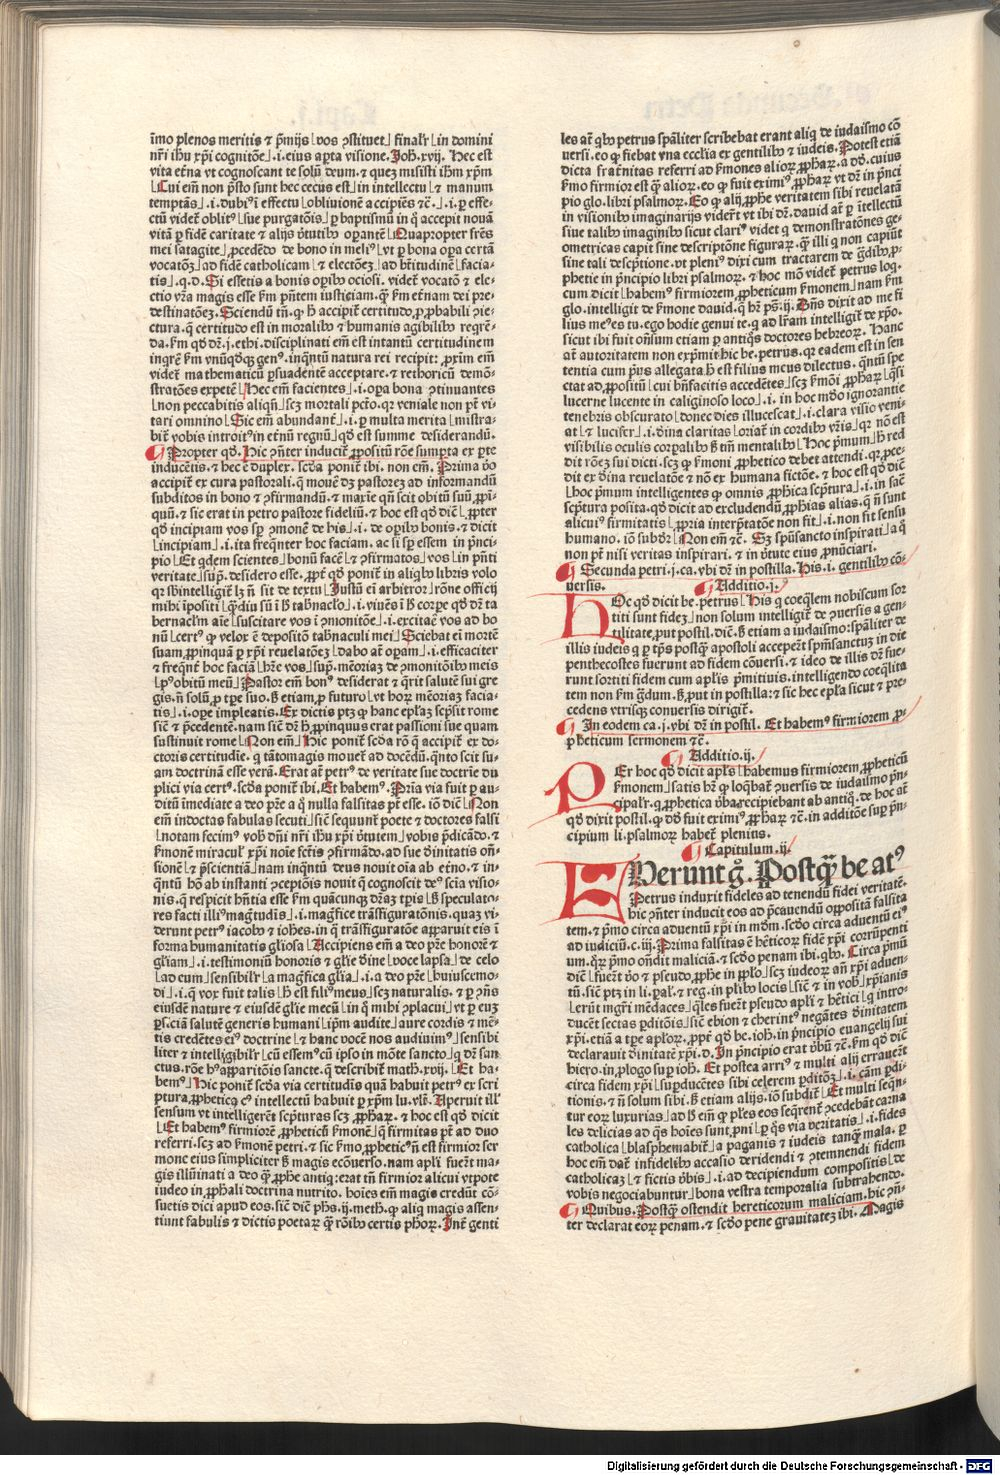 īmo plenos meritis ⁊ p̄mijs ⌊vos ꝯstituet⌋ finalr̄ ⌊in domini
nr̄i ihu xp̄i cognitōe⌋ .i. eius apta visione. Joh. xvij. Hec est
vita et̄na vt cognoscant te solū deum. ⁊ quez misisti ihm̄ xpm̄
⌊Cui em̄ non p̄sto sunt hec cecus est⌋ in intellectu ⌊⁊ manum
temptās⌋ .i. dubiꝰ i effectu ⌊obliuionē accipiēs ⁊c̄. .i. ꝑ effe-
ctū videt̄ oblitꝰ ⌊sue purgatōis⌋ ꝑ baptismū in q̄ accepit nouā
vitā ꝑ fidē caritate ⁊ alijs v̓tutibꝰ oꝑantē ⌊Quapropter frēs
mei satagite⌋ ꝓcedēdo de bono in meliꝰ ⌊vt ꝑ bona oꝑa certā
vocatōꝫ⌋ ad fidē catholicam ⌊⁊ electōeꝫ⌋ ad bt̄itudinē ⌊facia-
tis⌋ .q.d. Si essetis a bonis oꝑibꝰ ociosi. videt̄ vocatō ⁊ ele-
ctio vr̄a magis esse ẜm p̄ntem iusticiam. q̄ ẜm et̄nam dei pre-
destinatōeꝫ. Sciendū tn̄. ꝙ h̄ accipit̄ certitudo ꝓ ꝓbabili ꝯie-
ctura. q̄ certitudo est in moralibꝰ ⁊ humanis agibilibꝰ req̄rē-
da. ẜm qd̄ dr̄ .j. ethi. disciplinati em̄ est intantū certitudinem
inq̄rē ẜm vnūqd̄qꝫ genꝰ. inq̄ntū natura rei recipit. ꝓxim em̄
videt̄ mathematicū ꝑsuadentē acceptare. ⁊ rethoricū demō-
stratōes expetē ⌊Hec em̄ facientes⌋ .i. oꝑa bona ꝯtinuantes
⌊non peccabitis aliqn̄⌋ scꝫ mortali pctō. qꝛ veniale non pt̄ vi-
tari omnino ⌊Sic em̄ abundant̄⌋ .i. ꝑ multa merita ⌊mistra-
bit̄ vobis introitꝰ in et̄nū regnū⌋ qd̄ est summe desiderandū.
¶ Propter qd̄. Hic ꝯn̄ter inducit̄ ꝓpositū rōne sumpta ex ꝑte
inducētis. ⁊ hec ē duplex. scd̄a ponit̄ ibi. non em̄. Prima v̄o
accipit̄ ex cura pastorali. q̄ mouet̄ dꝫ pastoreꝫ ad informandū
subditos in bono ⁊ ꝯfirmandū. ⁊ maxīe qn̄ scit obitū suū ꝓpī-
quū. ⁊ sic erat in petro pastore fideliū. ⁊ hoc est qd̄ dic̄ ⌊ꝓpter
qd̄ incipiam vos sꝑ ꝯmonē de his⌋ .i. de oꝑibꝰ bonis. ⁊ dicit
⌊incipiam⌋ .i. ita freq̄nter hoc faciam. ac si sꝑ essem in p̄nci-
pio ⌊Et qdem scientes⌋ bonū facē ⌊⁊ ꝯfirmatos⌋ vos ⌊in p̄nti
veritate⌋ supp̄. desidero esse. ꝓpt̄ qd̄ ponit̄ in aliqbꝰ libris volo
qꝛ sb̄intelligit̄ lꝫ n̄ sit de textu ⌊Justū ei arbitror⌋ rōne officij
mihi ip̄ositi ⌊q̄diu sū i h̄ tab̄naclo⌋ .i. viuēs i h̄ corpe qd̄ dr̄ ta
bernaclm̄ aīe ⌊suscitare vos i ꝯmonitōe⌋ .i. excitāē vos ad bo
nū ⌊certꝰ ꝙ velox ē depositō tab̄naculi mei⌋ Sciebat ei mortē
suam ꝓpinquā ꝑ xp̄i reuelatōeꝫ ⌊dabo at̄ oꝑam⌋ .i. efficaciter
⁊ freq̄nt̄ hoc faciā ⌊hr̄e vos⌋ supp̄. mēoriaꝫ de ꝯmonitōibꝰ meis
⌊pꝰ obitū meū⌋ Pastor em̄ bonꝰ desiderat ⁊ q̄rit salutē sui gre
gis. n̄ solū ꝓ tꝑe suo. ß etiam ꝓ futuro ⌊vt hoꝝ mēoriaꝫ facia-
tis⌋ .i. oꝑe impleatis. Ex dictis ptꝫ ꝙ hanc epl̄aꝫ scp̄sit rome
sic̄ ⁊ p̄cedentē. nam sic̄ dr̄ h̄ ꝓpinquus erat passioni sue quam
sustinuit rome ⌊Non em̄⌋ Hic ponit̄ scd̄a rō q̄ accipit̄ ex do-
ctoris certitudīe. q̄ tātomagis mouet̄ ad docēdū. q̄nto scit su-
am doctrinā esse verā. Erat at̄ petrꝰ de veritate sue doctrīe du
plici via certꝰ. scd̄a ponit̄ ibi. Et habemꝰ. Pria via fuit ꝑ au-
ditū īmediate a deo pr̄e a q̄ nulla falsitas pt̄ esse. iō dic̄ ⌊Non
em̄ indoctas fabulas secuti⌋ sic̄ sequunt̄ poete ⁊ doctores falsi
⌊notam fecimꝰ vob̄ dn̄i nr̄i ihu xp̄i v̓tutem⌋ vobis p̄dicādo. ⁊
ẜmonē miraculꝝ xp̄i noīe fct̄is ꝯfirmādo. ad sue d̓initatis on̄-
sionē ⌊⁊ p̄scientiā⌋ nam inq̄ntū deus nouit oīa ab et̄no. ⁊ in-
q̄ntū hō ab instanti ꝯceptōis nouit q̄ cognoscit deꝰ scīa visio-
nis. q̄ respicit hn̄tia esse ẜm quācunqꝫ dr̄aꝫ tꝑis ⌊ß speculato-
res facti illiꝰ mag̓tudīs⌋ .i. mag̓fice trāsfiguratōnis. quaꝫ vi-
derunt petrꝰ iacobꝰ ⁊ iohēs. in q̄ trāsfiguratōe apparuit eis i
forma humanitatis gl̓iosa ⌊Accipiens em̄ a deo pr̄e honorē ⁊
gl̓iam⌋ .i. testimoniū honoris ⁊ gl̓ie d̓ine ⌊voce lapsa⌋ de celo
⌊ad eum⌋ sensibilr̄ ⌊a mag̓fica gl̓ia⌋ .i. a deo pr̄e ⌊huiuscemo-
di⌋ .i. q̄ vox fuit talis ⌊h̄ est filiꝰ meus⌋ scꝫ naturalis. ⁊ ꝑ ꝯn̄s
eiusdē nature ⁊ eiusdē gl̓ie mecū ⌊in q̄ mihi ꝯplacui⌋ vt ꝑ euꝫ
ꝑsciā salutē generis humani ⌊ip̄m audite⌋ aure cordis ⁊ mē-
tis credētes eiꝰ doctrine ⌊⁊ hanc vocē nos audiuimꝰ⌋ sensibi
liter ⁊ intelligibilr̄ ⌊cū essemꝰ cū ip̄so in mōte sancto⌋ q̄ dr̄ san
ctus. rōe hꝰ apparitōis sancte. q̄ describit̄ math. xvij. ⌊Et ha-
bemꝰ⌋ Hic ponit̄ scd̄a via certitudīs quā habuit petrꝰ ex scri
ptura ꝓphetica cꝰ intellectū habuit ꝑ xp̄m lu. vlt̄. Aperuit ill̓
sensum vt intelligerēt scp̄turas scꝫ ꝓphaꝝ. ⁊ hoc est qd̄ dicit
⌊Et habemꝰ firmiorē ꝓpheticū ẜmonē⌋ q̄ firmitas pt̄ ad duo
referri. scꝫ ad ẜmonē petri. ⁊ sic ẜmo ꝓpheticꝰ n̄ est firmior ser
mone eius simpliciter ß magis ecōuerso. nam apl̄i fuer̄t ma-
gis illūinati a deo q̄ ꝓphe antiq̄. erat tn̄ firmior alicui vtpote
iudeo in ꝓphali doctrina nutrito. hoīes em̄ magis credūt cō-
suetis dici apud eos. sic̄ dic̄ ph̄s .ij. meth. ꝙ aliq̄ magis assen-
tiunt fabulis ⁊ dictis poetaꝝ q̄ rōibꝰ certis ph̄oꝝ. Int̄ genti
les at̄ qbꝰ petrus spāliter scribebat erant aliq̄ de iudaismo cō
uersi. eo ꝙ fiebat vna eccl̄ia ex gentilibꝰ ⁊ iudeis. Potest etiā
dicta frat̄nitas referri ad ẜmones alioꝝ ꝓphaꝝ. a dd̄. cuius
ẜmo firmior est q̄ alioꝝ. eo ꝙ fuit eximiꝰ ꝓphaꝝ vt dr̄ in p̄nci
pio glo. libri psalmoꝝ. Eo ꝙ alij ꝓphe veritatem sibi reuelatā
in visionibꝰ imaginarijs vider̄t vt ibi dr̄. dauid at̄ ꝑ itellectū
siue talibꝰ imaginibꝰ sicut clariꝰ videt̄ q̄ demonstratōnes ge-
ometricas capit sine descriptōne figuraꝝ. q̄ illi q̄ non capiūt
sine tali descp̄tione. vt pleniꝰ dixi cum tractarem de g̓dibꝰ ꝓ-
phetie in p̄ncipio libri psalmoꝝ. ⁊ hoc mō videt̄ petrus loq̄.
cum dicit ⌊habemꝰ firmiorem ꝓpheticum ẜmonem⌋ nam ẜm
glo. intelligit̄ de ẜmone dauid. q̄ hr̄ ps̄. ij. Dn̄s dixit ad me fi
lius meꝰes tu. ego hodie genui te. q̄ ad lr̄am intelligit̄ de xp̄o.
sicut ibi fuit on̄sum etiam ꝑ antiq̄s doctores hebreoꝝ. Hanc
at̄ autoritatem non exp̄mit hic be. petrus. qꝛ eadem est in sen
tentia cum p̄us allegata h̄ est filius meus dilectus. q̄ntū spe
ctat ad ꝓpositū ⌊cui bn̄facitis accedētes⌋ scꝫ ẜmōi ꝓphaꝝ ⌊q̄si
lucerne lucente in caliginoso loco⌋ .i. in hoc mūdo ignorantie
tenebris obscurato ⌊donec dies illucescat⌋ .i. clara visio veni-
at ⌊⁊ lucifer⌋ .i. d̓ina claritas ⌊oriat̄ in cordibꝰ vr̄is⌋ qꝛ nō est
visibilis oculis corpalibꝰ ß tm̄ mentalibꝰ ⌊Hoc p̄mum⌋ h̄ red
dit rōeꝫ sui dicti. scꝫ ꝙ ẜmoni ꝓphetico debet attendi. qꝛ ꝓce-
dit ex d̓ina reuelatōe ⁊ nō ex humana fictōe. ⁊ hoc est qd̄ dic̄
⌊hoc p̄mum intelligentes ꝙ omnis ꝓphica scp̄tura⌋ .i. in sac̄
scp̄tura posita. qd̄ dicit ad excludendū ꝓphias alias. q̄ n̄ sunt
alicuiꝰ firmitatis ⌊ꝓpria interp̄tatōe non fit⌋ .i. non fit sensu
humano. iō subdr̄ ⌊Non em̄ ⁊c̄. Sꝫ spūsancto inspirati⌋ a q̄
non pt̄ nisi veritas inspirari. ⁊ in v̓tute eius ꝓnūciari.
¶ Secunda petri .j. ca. vbi dr̄ in postilla. His .i. gentilibꝰ cō-
uersis. ¶ Additio .j.
HOc qd̄ dicit be. petrus ⌊His q̄ coeq̄lem nobiscum sor
titi sunt fideꝫ⌋ non solum intelligit̄ de ꝯuersis a gen-
tilitate ꝓut postil. dic̄. ß etiam a iudaismo: spāliter de
illis iudeis q̄ ꝑ tp̄s postq̄ apostoli acceper̄t spm̄sanctuꝫ in die
penthecostes fuerunt ad fidem cōuersi. ⁊ ideo de illis dr̄ fue-
runt sortiti fidem cum apl̄is p̄mitiuis. intelligendo coeq̄lita
tem non ẜm g̓dum. ß ꝓut in postilla: ⁊ sic hec epl̄a sicut ⁊ pre-
cedens vtrisqꝫ conuersis dirigit̄.
¶ In eodem ca. j. vbi dr̄ in postil. Et habemꝰ firmiorem ꝓ-
pheticum sermonem ⁊c̄.
¶ Additio .ij.
PEr hoc qd̄ dicit apl̄s ⌊habemus firmiorem ꝓpheticū
ẜmonem⌋ satis hr̄ ꝙ loqbat̄ ꝯuersis de iudaismo p̄n-
cipalr̄. q̄ ꝓphetica v̓ba recipiebant ab antiq̄. de hoc at̄
qd̄ dixit postil. ꝙ dd̄ fuit eximiꝰ ꝓphaꝝ ⁊c̄. in additōe suꝑ p̄n-
cipium li. psalmoꝝ habet̄ plenius.
¶ Capitulum .ij.
FUerunt g̊. Postq̄ beatꝰ
Petrus induxit fideles ad tenendū fidei veritatē.
hic ꝯn̄ter inducit eos ad p̄cauendū opposita falsita
tem. ⁊ p̄mo circa aduentū xp̄i in mūdm̄. scd̄o circa aduentū eiꝰ
ad iudiciū. c. iij. Prima falsitas ē hēticoꝝ fidē xp̄i corrūpenti
um. qꝝ p̄mo on̄dit maliciā. ⁊ scd̄o penam ibi. qbꝰ. Circa p̄mū
dic̄ ⌊fuer̄t v̄o ⁊ pseudo ꝓphe in pplo⌋ scꝫ iudeoꝝ an̄ xp̄i aduen-
tū. sic̄ ptꝫ in li. ꝑal̓. ⁊ reg. in pl̄ibꝰ locis ⌊sic̄ ⁊ in vob̄⌋ xp̄ianis
⌊erūt mgr̄i mēdaces⌋ q̄les fuer̄t pseudo apl̄i ⁊ hētici ⌊q̄ intro-
ducēt sectas ꝑditōis⌋ sic̄ ebion ⁊ cherintꝰ negātes d̓initatem
xp̄i. etiā a tꝑe apl̄oꝝ. ꝓpt̄ qd̄ be. ioh. in p̄ncipio euangelij sui
declarauit d̓initatē xp̄i. d. In p̄ncipio erat v̓bū ⁊c̄. ẜm qd̄ dic̄
hiero. in ꝓlogo suꝑ ioh. Et postea arriꝰ ⁊ multi alij errauer̄t
circa fidem xp̄i ⌊suꝑducētes sibi celerem ꝑditōꝫ⌋ .i. cām ꝑdi-
tionis. ⁊ n̄ solum sibi. ß etiam alijs. iō subdit̄ ⌊Et multi seq̄n-
tur eoꝝ luxurias⌋ ad h̄ em̄ ꝙ pl̄es eos seq̄rent̄ ꝯcedebāt carna
les delicias ad q̄s hoīes sunt ꝓni ⌊ꝑ q̄s via v̓itatis⌋ .i. fides
catholica ⌊blasphemabit̄⌋ a paganis ⁊ iudeis tanq̄ mala. ꝑ
hoc em̄ dat̄ infidelibꝰ occasio deridendi ⁊ ꝯtemnendi fidem
catholicaꝫ ⌊⁊ fictis v̓bis⌋ .i. ad decipiendum compositis ⌊de
vobis negociabuntur⌋ bona vestra temporalia subtrahendo.
¶ Quibus. Postq̄ ostendit hereticorum maliciam. hic ꝯn̄-
ter declarat eoꝝ penam. ⁊ scd̄o pene grauitateꝫ ibi. Magis
Digitalisierung gefördert durch die Deutsche Forschungsgemeinschaft - DFG